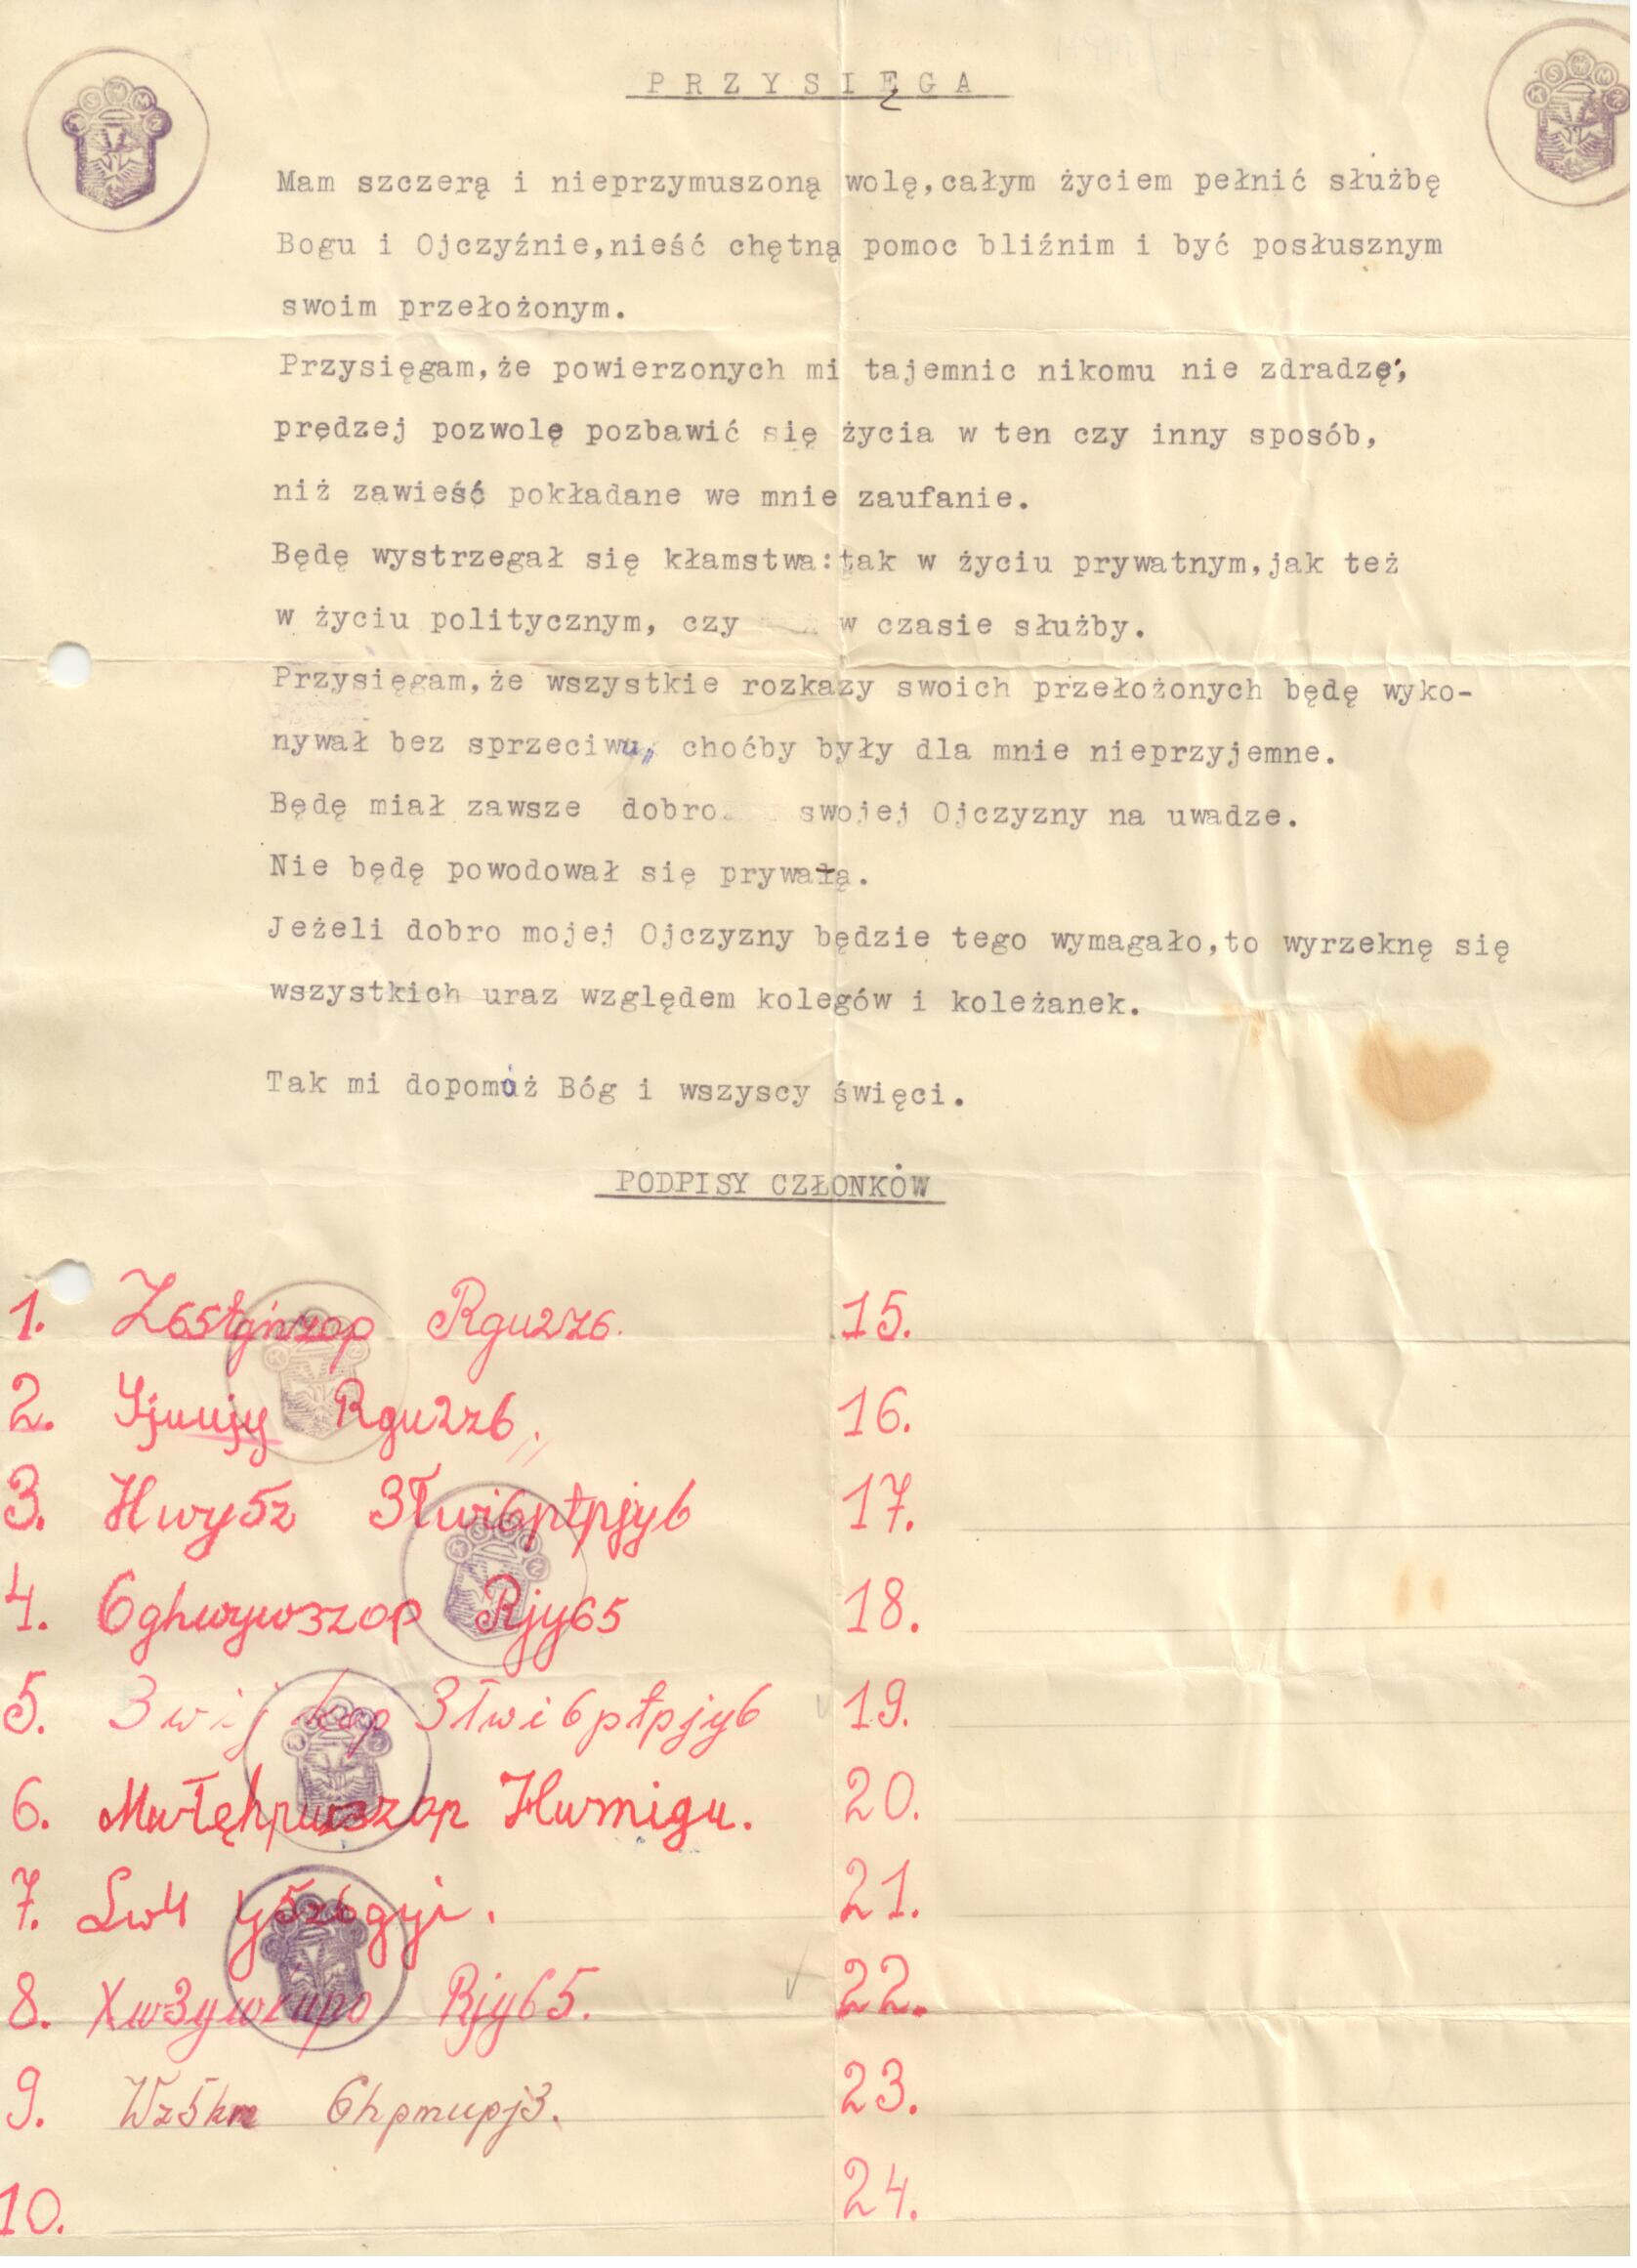 PRZYSIĘGA
Mam szczerą i nieprzymuszoną wolę,całym życiem pełnić służbę
Bogu i Ojczyźnie,nieść chętną pomoc bliźnim i być posłusznym
swoim przełożonym.
Przysięgam,że powierzonych mi tajemnic nikomu nie zdradzę,
prędzej pozwolę pozbawić się życia w ten czy inny sposób,
niż zawieść pokładane we mnie zaufanie.
Będę wystrzegał się kłamstwa:tak w życiu prywatnym,jak też
w życiu politycznym, czy w czasie służby.
Przysięgam,że wszystkie rozkazy swoich przełożonych będę wyko-
nywał bez sprzeciwu, choćby były dla mnie nieprzyjemne.
Będę miał zawsze dobro swojej Ojczyzny na uwadze.
Nie będę powodował się prywatą.
Jeżeli dobro mojej Ojczyzny będzie tego wymagało,to wyrzeknę się
wszystkich uraz względem kolegów i koleżanek.
Tak mi dopomóż Bóg i wszyscy święci.
PODPISY CZŁONKÓW
1. Rgu2z6.
2. Yjuujy Rgu2z6.
3. Hwy5z 3łwi6płpjy6
4. 6ghwyw3zop Rjy65
5. 3łwi6płpjy6
6. Hwmigu.
7. Lw4 y5z6gyi.
8. Rjy65.
9. Wz5km 6hpmupj3.
10.
15.
16.
17.
18.
19.
20.
21.
22.
23.
24.